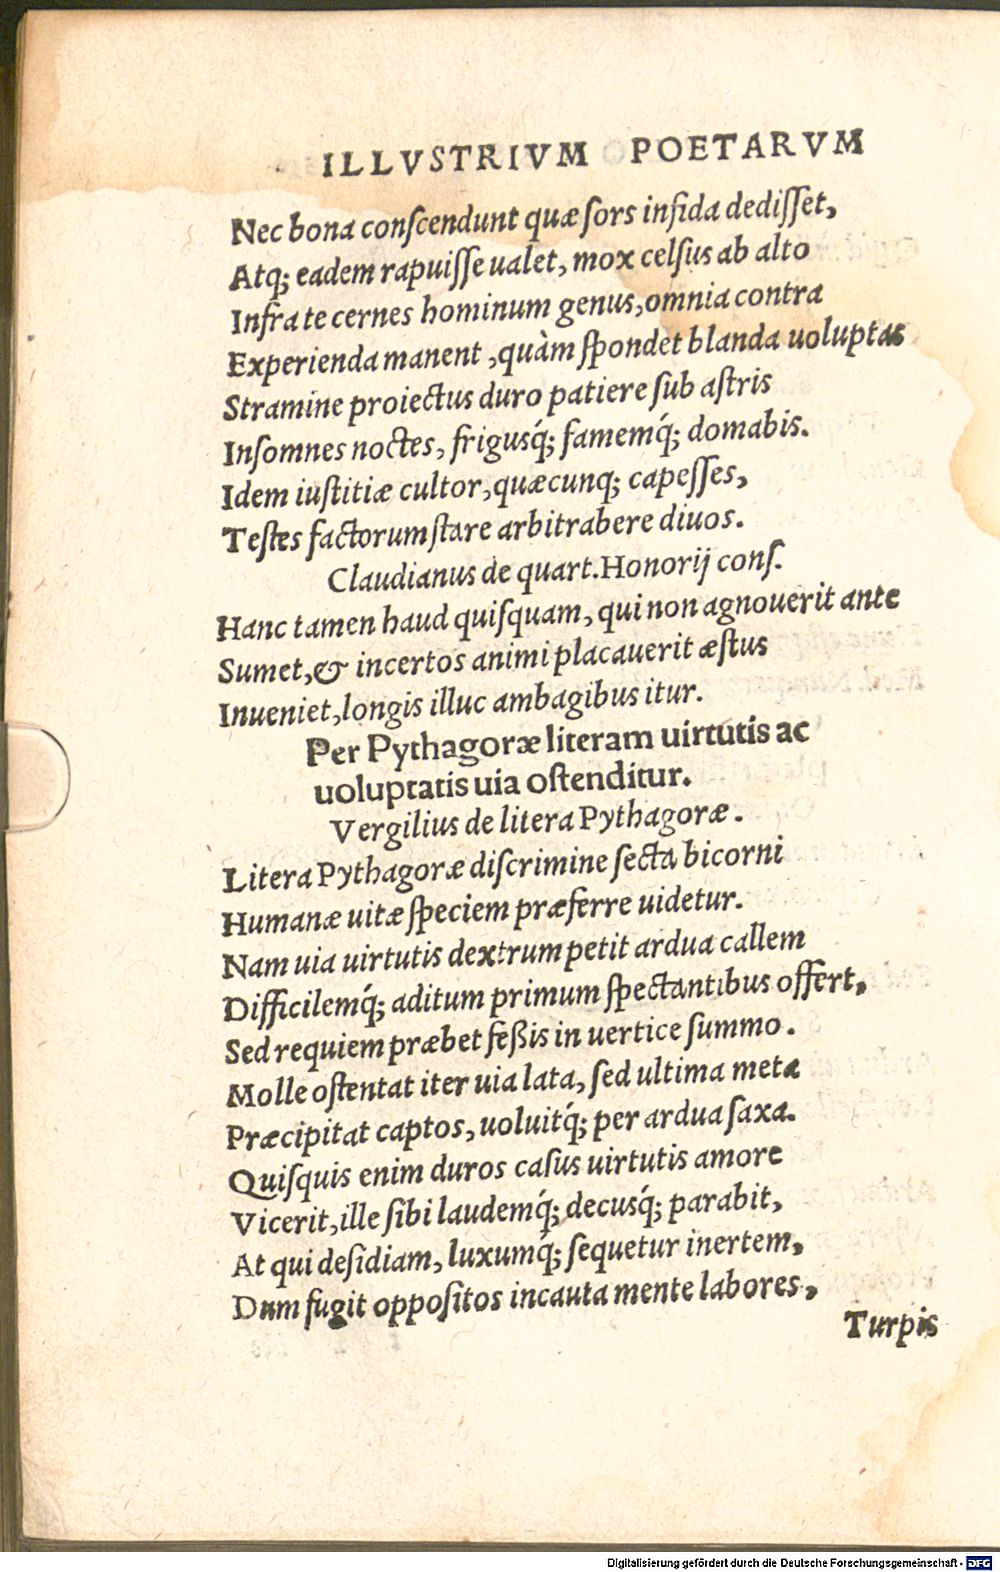 ILLVSTRIVM POETARVM
Nec bona conſcendunt quæ ſors infida dediſſet,
Atq; eadem rapuiſſe ualet, mox celſus ab alto
Infra te cernes hominum genus, omnia contra
Experienda manent, quàm ſpondet blanda uoluptas
Stramine proiectus duro patiere ſub aſtris
Inſomnes noctes, frigusq́; famemq́; domabis.
Idem iuſtitiæ cultor, quæcunq; capeſſes,
Teſtes factorum ſtare arbitrabere diuos.
Claudianus de quart. Honorij conſ.
Hanc tamen haud quiſquam, qui non agnouerit ante
Sumet, & incertos animi placauerit æſtus
Inueniet, longis illuc ambagibus itur.
Per Pythagoræ literam uirtutis ac
uoluptatis uia oſtenditur.
Vergilius de litera Pythagoræ.
Litera Pythagoræ diſcrimine ſecta bicorni
Humanæ uitæ ſpeciem præferre uidetur.
Nam uia uirtutis dextrum petit ardua callem
Difficilemq́; aditum primum ſpectantibus offert,
Sed requiem præbet feßis in uertice ſummo.
Molle oſtentat iter uia lata, ſed ultima meta
Præcipitat captos, uoluitq́; per ardua ſaxa.
Quiſquis enim duros caſus uirtutis amore
Vicerit, ille ſibi laudemq́; decusq́; parabit,
At qui deſidiam, luxumq́; ſequetur inertem,
Dum fugit oppoſitos incauta mente labores,
Turpis
Digitalisierung gefördert durch die Deutsche Forschungsgemeinschaft - DFG